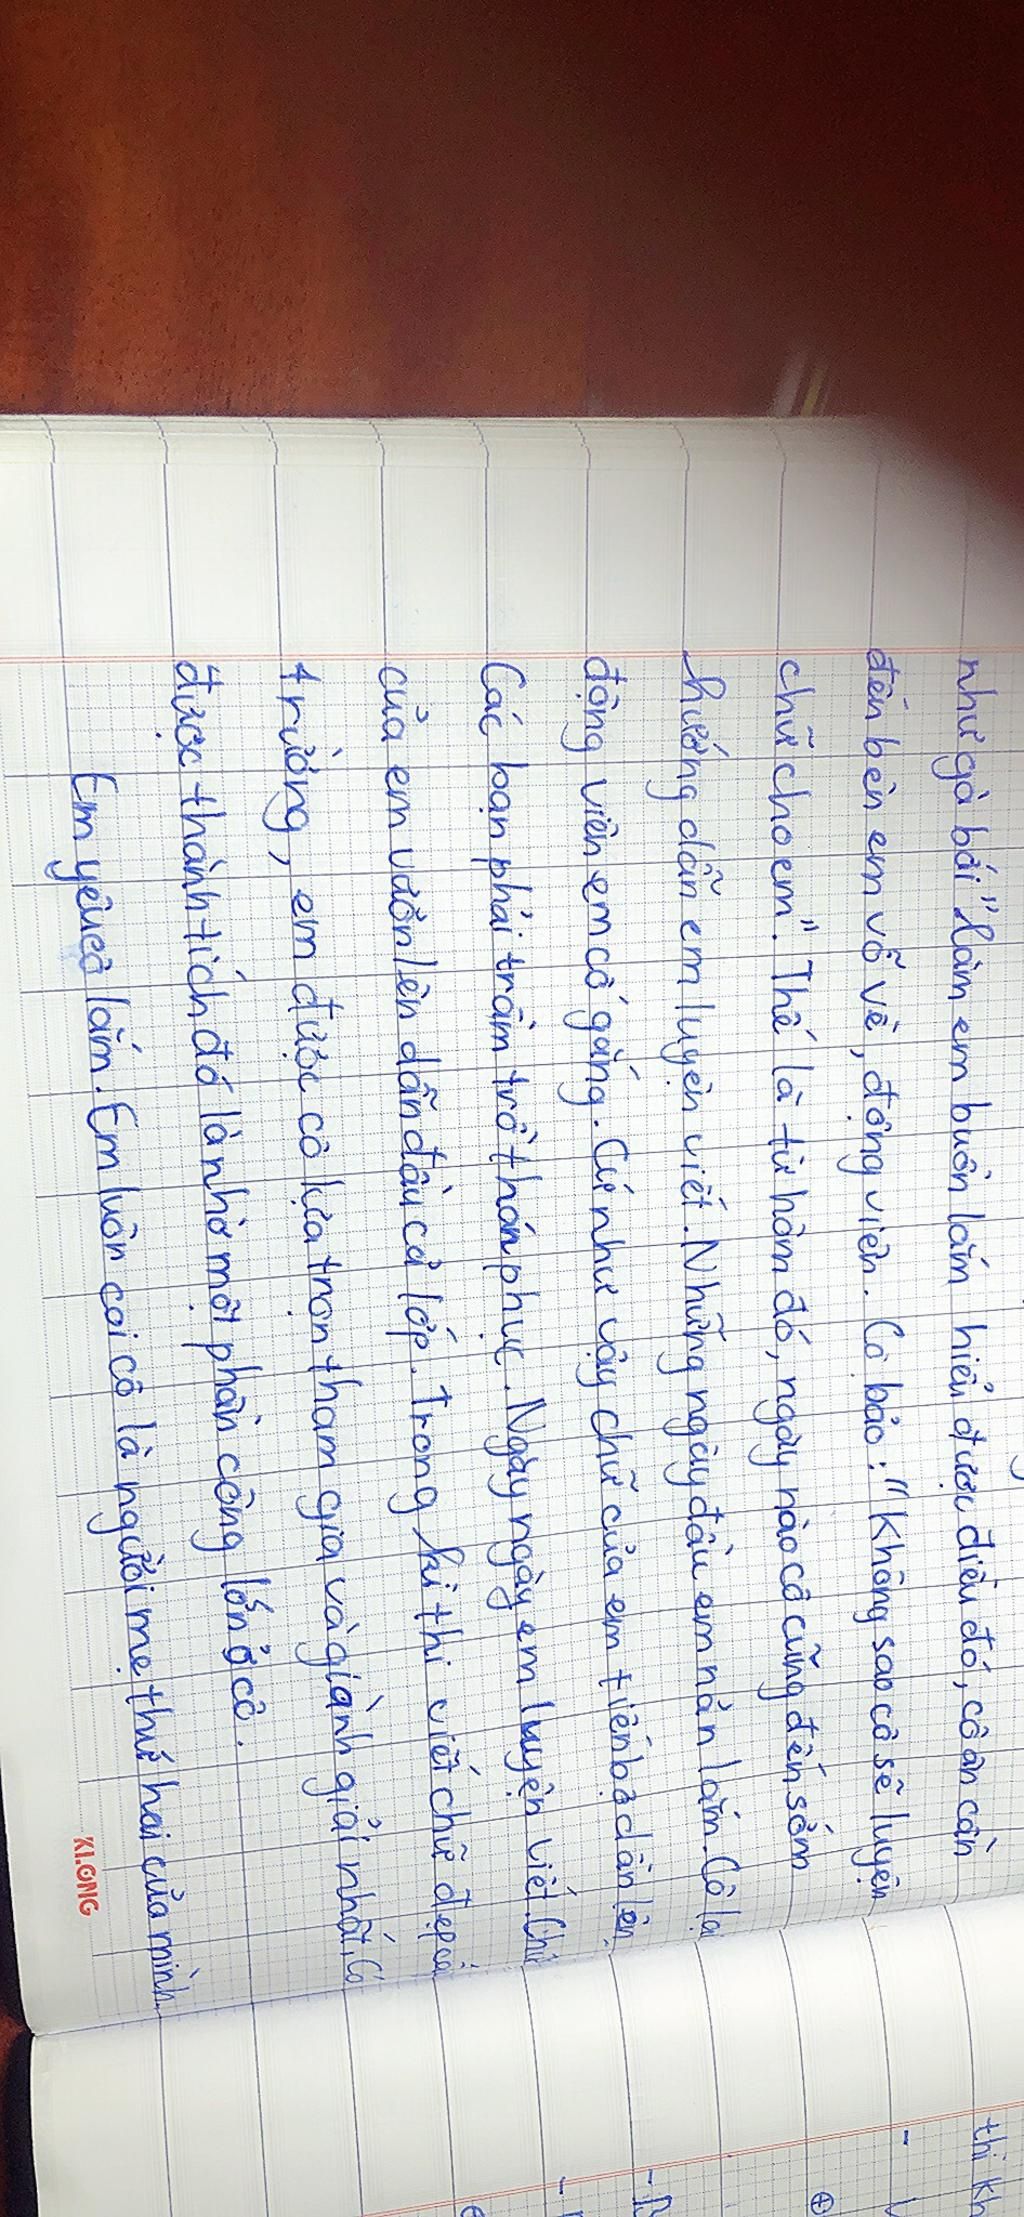 như gà bới" làm em buồn lắm hiểu được điều đó, cô ân cần
đến bên em vỗ về, động viên. Cô bảo: "Không sao cô sẽ luyện
chữ cho em". Thế là từ hôm đó, ngày nào cô cũng đến sớm
hướng dẫn em luyện viết. Những ngày đầu em nản lắm. Cô lại
động viên em cố gắng. Cứ như vậy chữ của em tiến bộ dần lên.
Các bạn phải trầm trồ thán phục. Ngày ngày em luyện viết. Chữ
của em vươn lên dẫn đầu cả lớp. Trong kì thi viết chữ đẹp cả
trường, em được cô lựa trọn tham gia và giành giải nhất. Có
được thành tích đó là nhờ một phần công lớn ở cô.
Em yêu cô lắm. Em luôn coi cô là người mẹ thứ hai của mình.
KLONG
thi kh
-
-
-